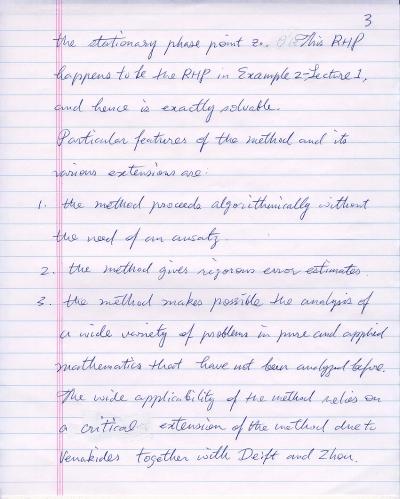 3
the stationary phase point z₀. This RHP
happens to be the RHP in Example 2-Lecture 1,
and hence is exactly solvable.
Particular features of the method and its
various extensions are:
1. the method proceeds algorithmically without
the need of an ansatz.
2. the method gives rigorous error estimates.
3. the method makes possible the analysis of
a wide variety of problems in pure and applied
mathematics that have not been analyzed before.
The wide applicability of the method relies on
a critical extension of the method due to
Venakides together with Deift and Zhou.